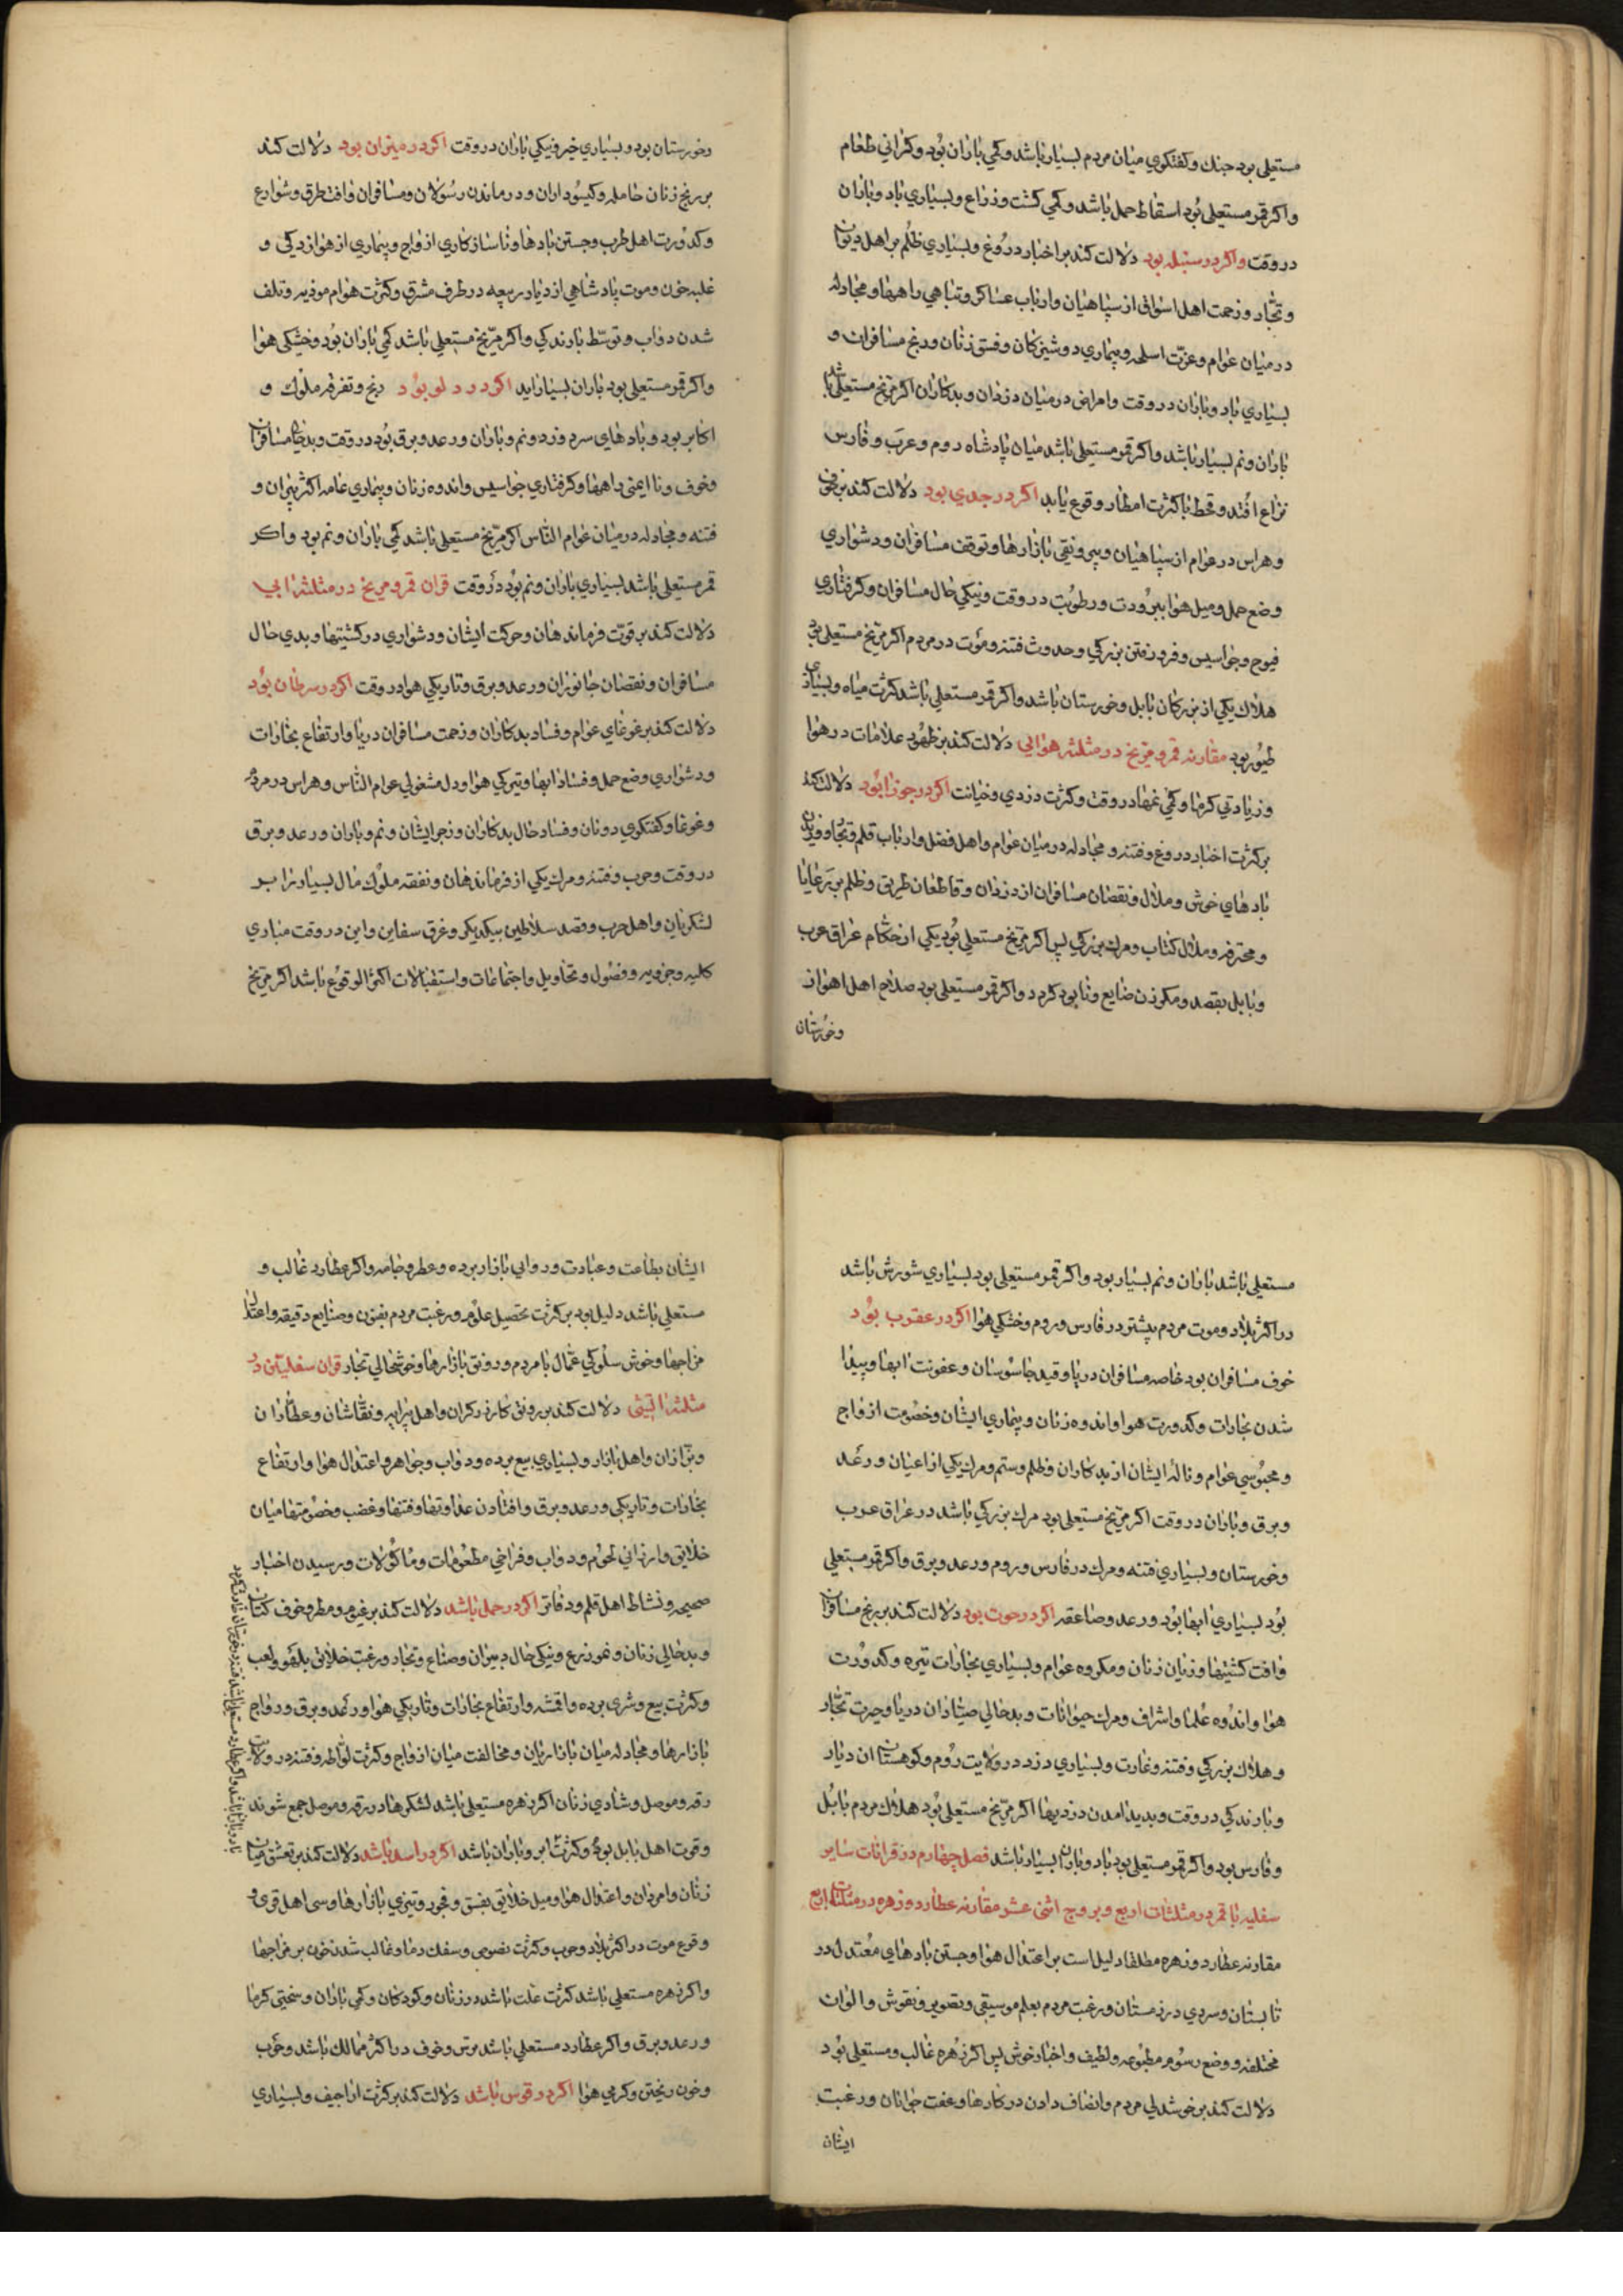 مستعلی بود جنك وکفتکوی میان مردم بسیار باشد وکمی باران بود وکرانی طعام
واکر قمر مستعلی بود اسقاط حمل باشد وکمی کشت وزراع وبسیاری باد وباران
در وقت واکر در سنبله بود دلالت کند بر اخبار دروغ وبسیاری ظلم بر اهل دیوان
وتجار وزحمت اهل اسواق از سپاهیان وارباب عساکر وتباهی راهها ومجادله
در میان عوام وعزت اسلحه وبیماری دوشیزکان وفسق زنان ورنج مسافران و
بسیاری باد وباران در وقت وامراض در میان دزدان وبدکاران اکر مریخ مستعلی باشد
باران ونم بسیار باشد واکر قمر مستعلی باشد میان پادشاه روم وعرب وفارس
نزاع افتد وقحط باکثرت امطار وقوع یابد اکر در جدی بود دلالت کند بر خوف
وهراس در عوام از سپاهیان وبی رونقی بازارها وتوقف مسافران ودشواری
وضع حمل ومیل هوا ببرودت ورطوبت در وقت ونیکی حال مسافران وکرفتاری
فیوج وجواسیس وفرو رفتن بزرکی وحدوث فتنه وموت در مردم اکر مریخ مستعلی بود
هلاك یکی از بزرکان بابل وخورستان باشد واکر قمر مستعلی باشد کثرت میاه وبسیاری
طیور بود مقارنه قمر ومریخ در مثلثه هوایی دلالت کند بر ظهور علامات در هوا
وزیادتی کرما وکمی نمها در وقت وکثرت دزدی وخیانت اکر در جوزا بود دلالت کند
بر کثرت اخبار دروغ وفتنه ومجادله در میان عوام واهل فضل وارباب قلم وتجار ووزیدن
بادهای خوش وملال ونقصان مسافران از دزدان وقاطعان طریق وظلم بر رعایا
ومحترفه وملال کتاب ومرك بزرکی پس اکر مریخ مستعلی بود یکی از حکام عراق عرب
وبابل بقصد ومکر زن ضایع ونابود کردد واکر قمر مستعلی بود صلاح اهل اهواز
وخورستان
وخورستان بود وبسیاری خیر ونیکی باران در وقت اکر در میزان بود دلالت کند
بر رنج زنان حامله وکیسوداران ودرماندن رسولان ومسافران وافت طرق وشوارع
وکدورت اهل طرب وجستن بادها وناسازکاری ازواج وبیماری از هوازدکی و
غلبه خون وموت پادشاهی از دیار ربیعه در طرف مشرق وکثرت هوام موذیه وتلف
شدن دواب وتوسط بارندکی واکر مریخ مستعلی باشد کمی باران بود وخشکی هوا
واکر قمر مستعلی بود باران بسیار اید اکر در دلو بود رنج وتفرقه ملوك و
اکابر بود وبادهای سرد وزد ونم وباران ورعد وبرق بود در وقت وبدحالی مسافران
وخوف ونا ایمنی راهها وکرفتاری جواسیس واندوه زنان وبیماری عامه اکثر پیران و
فتنه ومجادله در میان عوام الناس اکر مریخ مستعلی باشد کمی باران ونم بود واکر
قمر مستعلی باشد بسیاری باران ونم بود در وقت قران قمر ومریخ در مثلثه ابی
دلالت کند بر قوت فرماندهان وحرکت ایشان ودشواری در کشتیها وبدی حال
مسافران ونقصان جانوران ورعد وبرق وتاریکی هوا در وقت اکر در سرطان بود
دلالت کند بر غوغای عوام وفساد بدکاران وزحمت مسافران دریا وارتفاع بخارات
ودشواری وضع حمل وفساد ابها وتیرکی هوا ودل مشغولی عوام الناس وهراس در مردم
وغوغا وکفتکوی دونان وفساد حال بدکاران وزجر ایشان ونم وباران ورعد وبرق
در وقت وحرب وفتنه ومرك یکی از فرماندهان ونفقه ملوك مال بسیار را بر
لشکریان واهل حرب وقصد سلاطین بیکدیکر وغرق سفاین واین در وقت مبادی
کلیه وجزویه وفصول وتحاویل واجتماعات واستقبالات اکثر الوقوع باشد اکر مریخ
مستعلی باشد باران ونم بسیار بود واکر قمر مستعلی بود بسیاری شورش باشد
در اکثر بلاد وموت مردم بیشتر در فارس وروم وخشکی هوا اکر در عقرب بود
خوف مسافران بود خاصه مسافران دریا وقید جاسوسان وعفونت ابها وپیدا
شدن بخارات وکدورت هوا واندوه زنان وبیماری ایشان وخصومت ازواج
ومحبوسی عوام وناله ایشان از بدکاران وظلم وستم ومرك یکی از اعیان ورعد
وبرق وباران در وقت اکر مریخ مستعلی بود مرك بزرکی باشد در عراق عرب
وخورستان وبسیاری فتنه ومرك در فارس وروم ورعد وبرق واکر قمر مستعلی
بود بسیاری ابها بود ورعد وصاعقه اکر در حوت بود دلالت کند بر رنج مسافران
وافت کشتیها وزیان زنان ومکروه عوام وبسیاری بخارات تیره وکدورت
هوا واندوه علما واشراف ومرك حیوانات وبدحالی صیادان دریا وحیرت تجار
وهلاك بزرکی وفتنه وغارت وبسیاری دزد در ولایت روم وکوهستان ان دیار
وبارندکی در وقت وپدید امدن دزدیها اکر مریخ مستعلی بود هلاك مردم بابل
وفارس بود واکر قمر مستعلی بود باد وباران بسیار باشد فصل چهارم در قرانات سایر
سفلیه با قمر در مثلثات اربع وبروج اثنی عشر مقارنه عطارد وزهره در مثلثات اربع
مقارنه عطارد وزهره مطلقا دلیل است بر اعتدال هوا وجستن بادهای معتدل در
تابستان وسردی در زمستان ورغبت مردم بعلم موسیقی وتصویر ونقوش والوان
مختلفه ووضع رسوم مطبوعه ولطیف واخبار خوش پس اکر زهره غالب ومستعلی بود
دلالت کند بر خوشدلی مردم وانصاف دادن در کارها وعفت جوانان ورغبت
ایشان
ایشان بطاعت وعبادت وروایی بازار برده وعطر وجامه واکر عطارد غالب و
مستعلی باشد دلیل بود بر کثرت تحصیل علوم ورغبت مردم بفنون وصنایع دقیقه واعتدال
مزاجها وخوش سلوکی عمال با مردم ورونق بازارها وخوشحالی تجار قران سفلیین در
مثلثه اتشی دلالت کند بر رونق کار زرکران واهل پیرایه ونقاشان وعطاران
وبزازان واهل بازار وبسیاری بیع برده ودواب وجواهر واعتدال هوا وارتفاع
بخارات وتاریکی ورعد وبرق وافتادن عداوتها وفتنها وغضب وخصومتها میان
خلایق وارزانی لحوم ودواب وفراخی مطعومات وماکولات ورسیدن اخبار
صحیحه ونشاط اهل قلم ودفاتر اکر در حمل باشد دلالت کند بر غیوم ومطر وخوف کتاب
وبدحالی زنان ونمو زرع ونیکی حال دبیران وصناع وتجار ورغبت خلایق بلهو ولعب
وکثرت بیع وشری برده واقمشه وارتفاع بخارات وتاریکی هوا ورعد وبرق ورواج
بازارها ومجادله میان بازاریان ومخالفت میان ازواج وکثرت لواطه وفتنه در ولایت
رقه وموصل وشادی زنان اکر زهره مستعلی باشد لشکرها در رقه وموصل جمع شوند
وقوت اهل بابل بود وکثرت ابر وباران باشد اکر در اسد باشد دلالت کند بر تعشق میان
زنان وامردان واعتدال هوا ومیل خلایق بفسق وفجور وتیزی بازارها وسی اهل قری و
وقوع موت در اکثر بلاد وحرب وکثرت لصوص وسفك دما وغالب شدن خون بر مزاجها
واکر زهره مستعلی باشد کثرت علت باشد در زنان وکودکان وکمی باران وسختی کرما
ورعد وبرق واکر عطارد مستعلی باشد ترس وخوف در اکثر ممالك باشد وحرب
وخون ریختن وکرمی هوا اکر در قوس باشد دلالت کند بر کثرت اراجیف وبسیاری